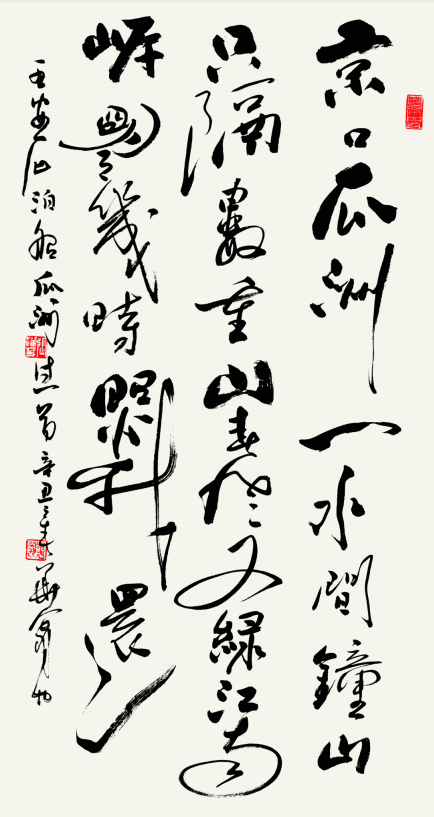 京口瓜洲一水間鐘山
只隔數重山春風又綠江南
岸明月幾時照我還
王安石泊船瓜洲 辛丑